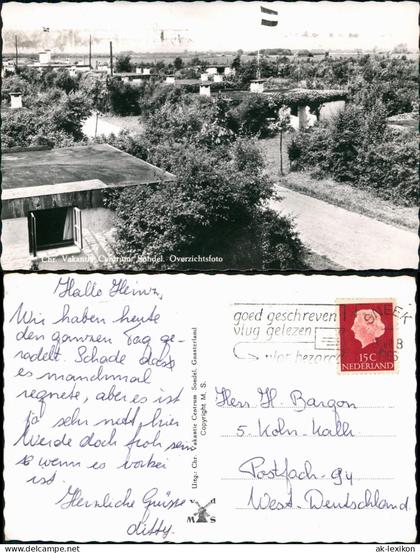 Chr. Vakantie Centrum Sondel. Overzichtsfoto
Hallo Heinz,
Wir haben heute
den ganzen Tag ge-
rodelt. Schade dass
es manchmal
regnete, aber es ist
ja sehr nett hier
Werde doch froh sein
wenn es vorbei
ist.
Herzliche Grüsse
Uitg.: Chr. Vakantie Centrum Sondel, Gaasterland
Copyright M. S.
v d
M S
SNEEK
goed geschreven
vlug gelezen
vlot bezorgd
15C
NEDERLAND
Herrn H. Bargon
5. Köln-Kalk
Postfach-94
West-Deutschland
ak-lexikon
© ak-lexikon.de